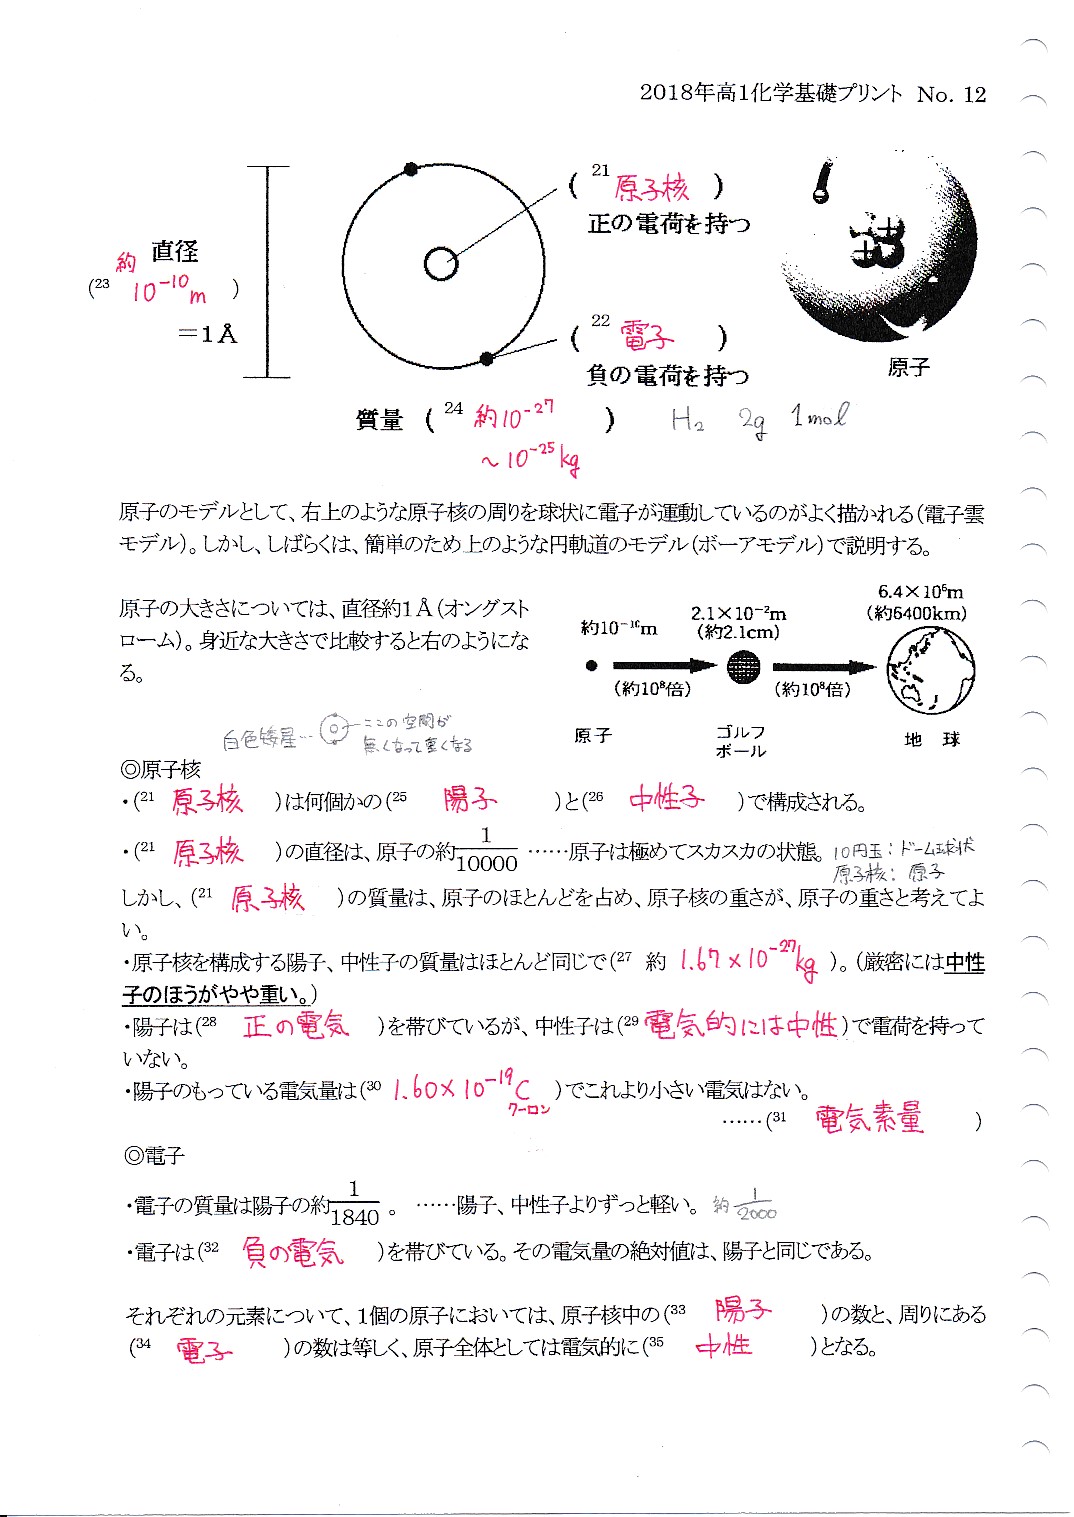 2018年高1化学基礎プリント No. 12
(21 原子核 )
正の電荷を持つ
直径
(23 約10⁻¹⁰m )
＝1Å
(22 電子 )
負の電荷を持つ
原子
質量 (24 約10⁻²⁷ ) H₂ 2g 1mol
～10⁻²⁵kg
原子のモデルとして、右上のような原子核の周りを球状に電子が運動しているのがよく描かれる（電子雲
モデル）。しかし、しばらくは、簡単のため上のような円軌道のモデル（ボーアモデル）で説明する。
原子の大きさについては、直径約1Å（オングスト
ローム）。身近な大きさで比較すると右のようにな
る。
6.4×10⁶m
(約6400km)
2.1×10⁻²m
(約2.1cm)
約10⁻¹⁰m
(約10⁸倍) (約10⁸倍)
原子 ゴルフ
ボール 地球
白色矮星… ここの空間が
無くなって重くなる
◎原子核
・(21 原子核 )は何個かの(25 陽子 )と(26 中性子 )で構成される。
・(21 原子核 )の直径は、原子の約1/10000 ……原子は極めてスカスカの状態。 10円玉：ドーム球状
原子核：原子
しかし、(21 原子核 )の質量は、原子のほとんどを占め、原子核の重さが、原子の重さと考えてよ
い。
・原子核を構成する陽子、中性子の質量はほとんど同じで(27 約 1.67×10⁻²⁷kg )。（厳密には中性
子のほうがやや重い。）
・陽子は(28 正の電気 )を帯びているが、中性子は(29 電気的には中性)で電荷を持って
いない。
・陽子のもっている電気量は(30 1.60×10⁻¹⁹C )でこれより小さい電気はない。
クーロン
……(31 電気素量 )
◎電子
・電子の質量は陽子の約1/1840 。 ……陽子、中性子よりずっと軽い。 約1/2000
・電子は(32 負の電気 )を帯びている。その電気量の絶対値は、陽子と同じである。
それぞれの元素について、1個の原子においては、原子核中の(33 陽子 )の数と、周りにある
(34 電子 )の数は等しく、原子全体としては電気的に(35 中性 )となる。